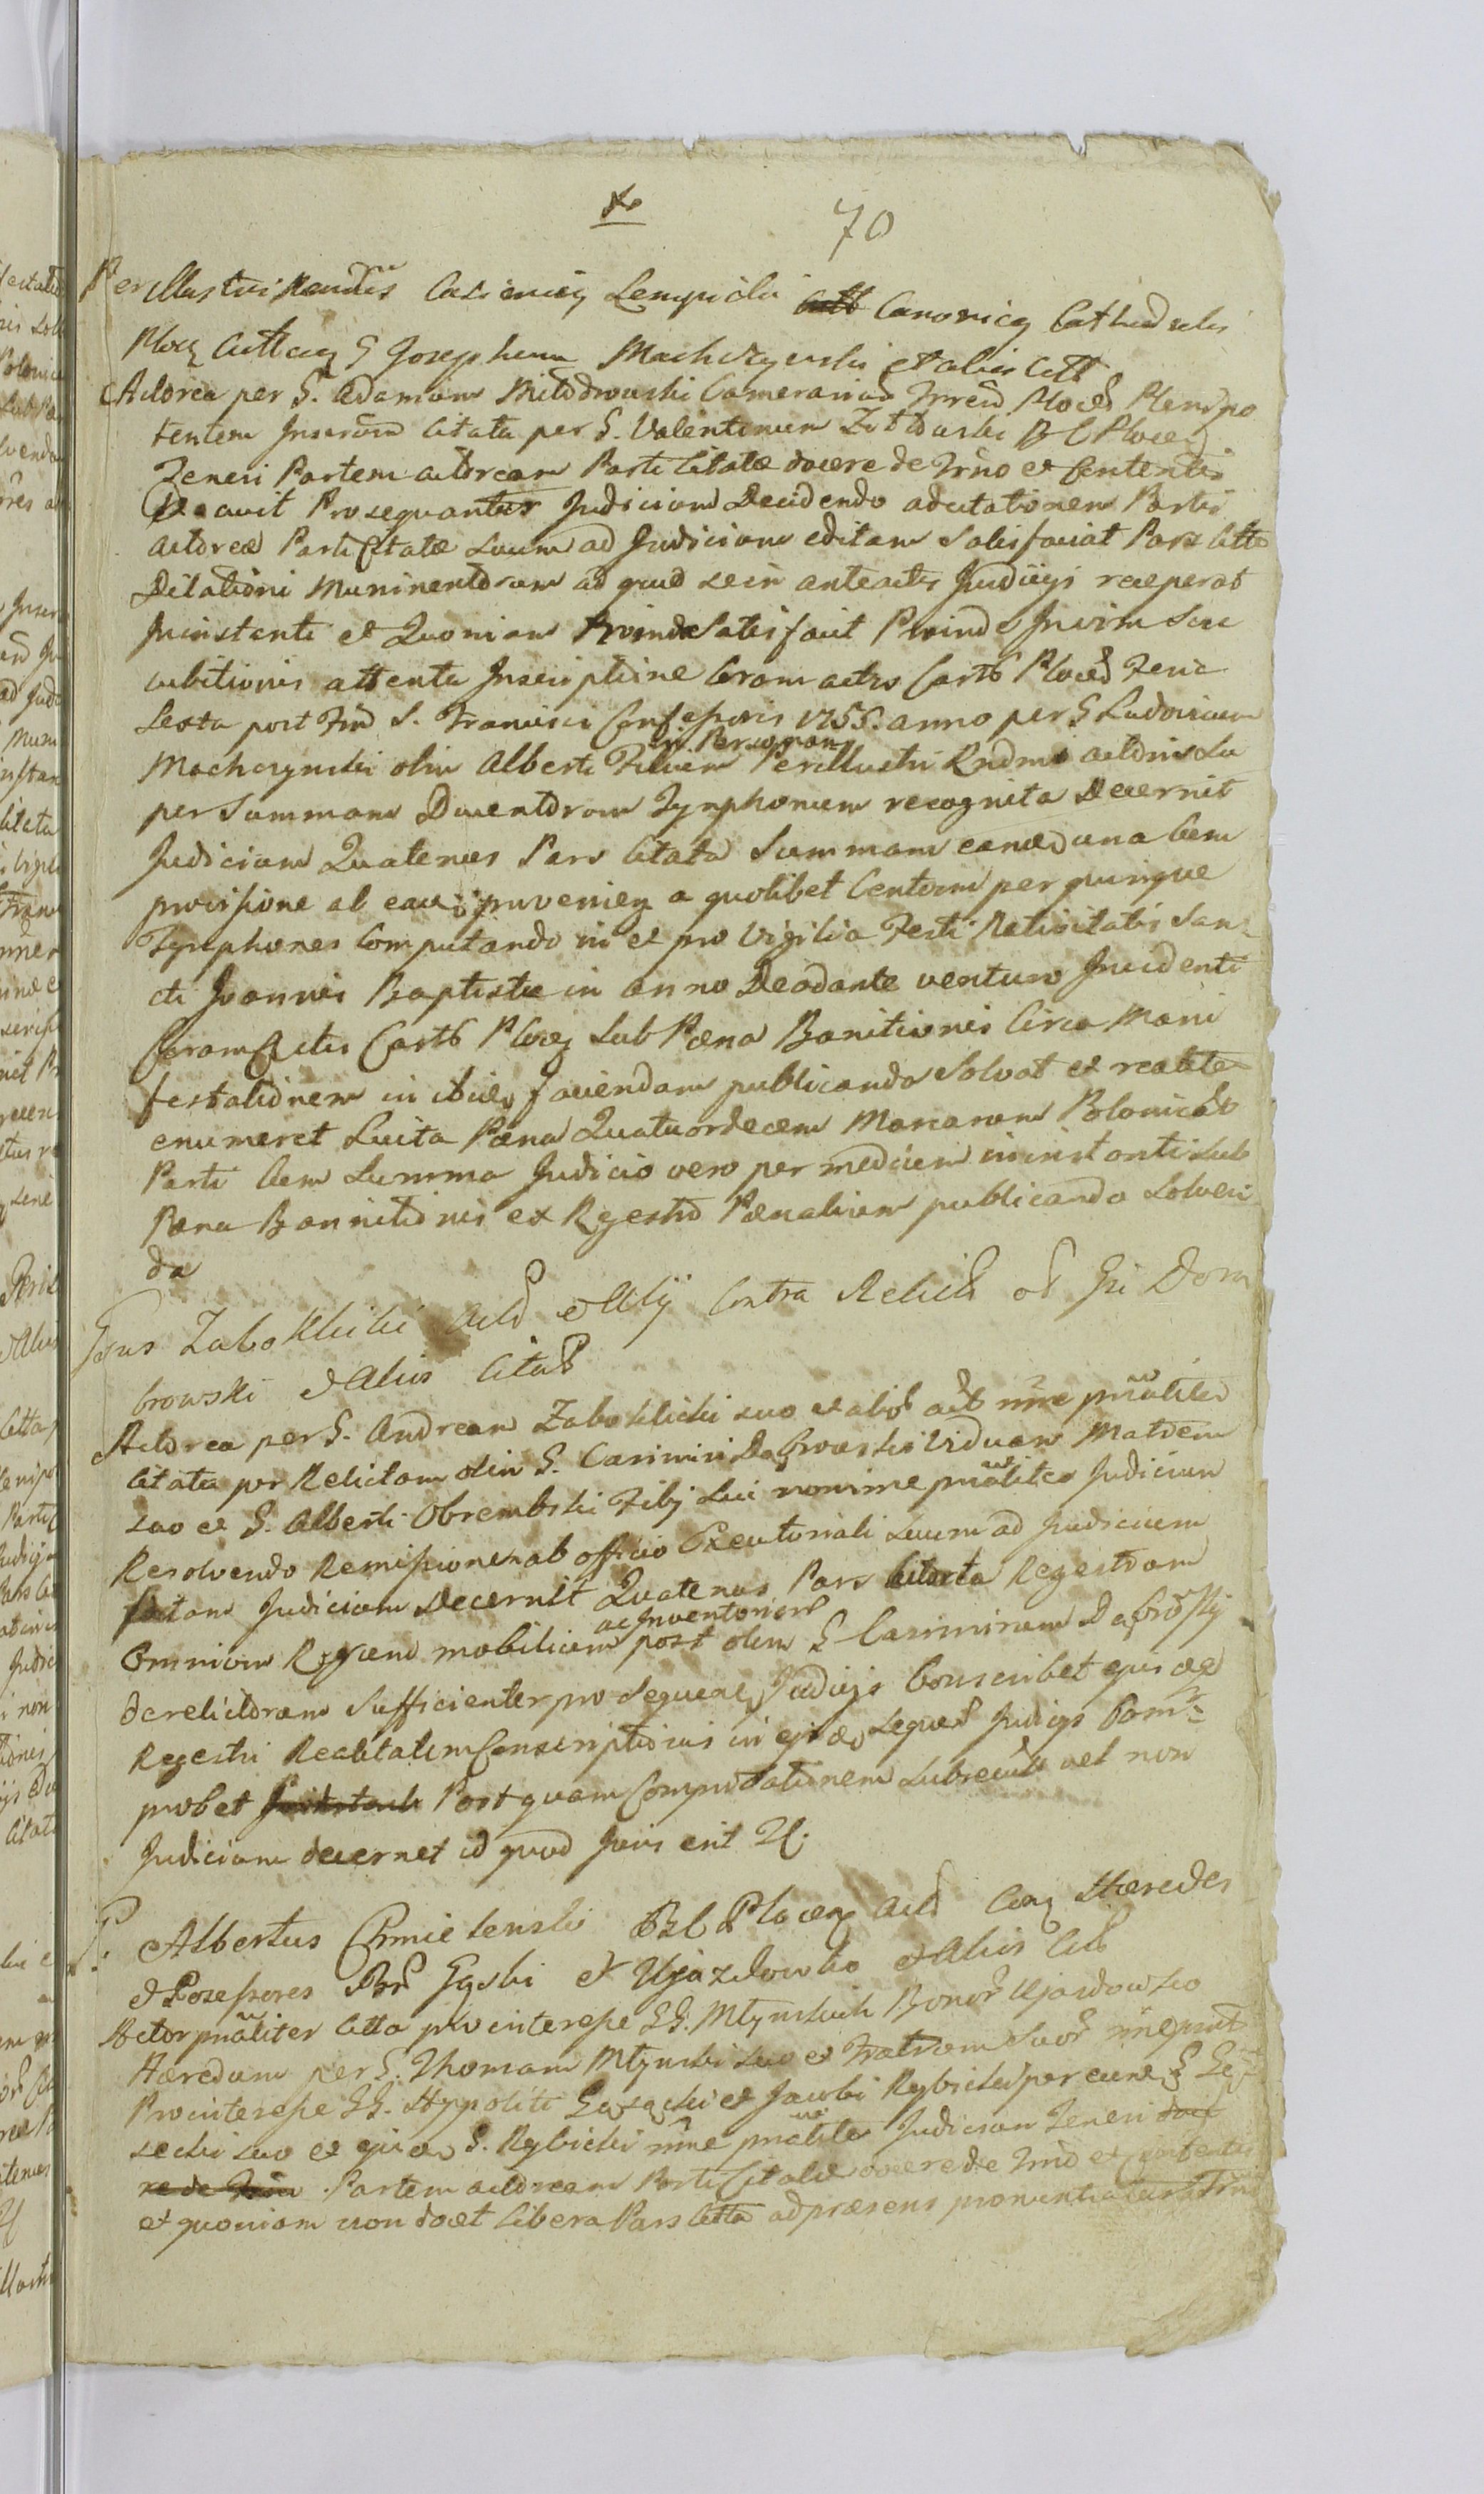 70
Perillustris Rendus Casimirg Lempicki Canonicg Cathedralis
Plocz Cottag G Josephum Machczynski et alios Citt
Actorea per G. Adamum Miłodrowski Camerarium Trren Ploceñ Plenipo
tentem Inseruim Citata per G. Valentinum Zołtowski B C Plocen
Teneri Partem actoream Parti Citatæ docere de Trino et Contentis
Prosequantur Judicium Decidendo ad citationem Partis
actoreæ Parti Citatæ suum ad Judicium editam Satisfaciat Pars Citta
Dilationi Munimentorum ad quod se in anteactis Judicijs receperat
Jninstanti et Quoniam Proinde Satisfacit Proinde Jnvim Suc
cubitionis attenta Jnscriptione Coram actis Castr Ploceñ Feria
Sexta post Ftum S. Francisci Confessoris 1755. anno per G Ludovicum
Machczynski olim Alberti Filium in Personam Perillustri Rndmi actoris Su
per Summam Ducentorum Tynphonum recognita Decernit
Judicium Quatenus Pars Citata Summam eand una Cum
provisione ab ead provenieñ a quolibet Centum per quinque
Tynphones Computando in et pro Vigilia Festi Nativitatis San-
cti Joannis Baptistæ in anno Deodante venturo Jncidenti
Coram Actis Castr Ploceñ Sub Pæna Banitionis Circa Mani
festationem in ibidem faciendam publicanda Solvat et realiter
enumeret Luita Pæna Quatuordecem Marcarum Polonical
Parti Cum Summa Judicio vero per medium in instanti sub
Pæna Bannitionis ex Regestro Pænalium publicanda Solven
da
Gsus Zabokliki Act et Alij Contra Relict ol Gsi Dom
browski et Alios Citat
Actorea per G. Andream Zaboklicki suo et aliôr act nne pnaliter
Citata per Relictam olim G. Casimiri Dąbrowski Viduam Matrem
suo et G. Alberti Obrembski Filij Sui nomine pnaliter Judicium
Resolvendo Remissionem ab officio Executoriali suum ad Judicium
factam Judicium Decernit Quatenus Pars Citata Regestrum
Omnium Rerum mobilium ac Jnventorior post olim G Casimirum Dąbrosky
derelictorum Sufficienter pro Sequen Judicijs Conscribet ejusq
Regestri Realitatem Conscriptionis in ejsdem Sequen Judicijs Com-
probet Postquam Comprobationem subsecut vel non
Judicium decernet id quod Juris erit &.
G. Albertus Chmielenski B C Plocen Act Cong Hæredes
et Possessores Br Gąski et Ujazdowko et Alios Citt
Actor pnaliter Citta pro interesse GG. Młynskich Bonor Ujazdowko
Hæredum per G. Thomam Młynski suo et Fratrum Suor nne pnt
Pro interesse GG. Hyppoliti Gąsecki et Jacobi Rybicki per eund G Gą-
secki suo et ejusd G. Rybicki nne pnaliter Judicium Teneri doce
re de Trino Partem actoream Parti Citatæ docere de Trino et Contentis
et quoniam non docet Libera Pars Citta ad præsens pronuntiatur a Trino